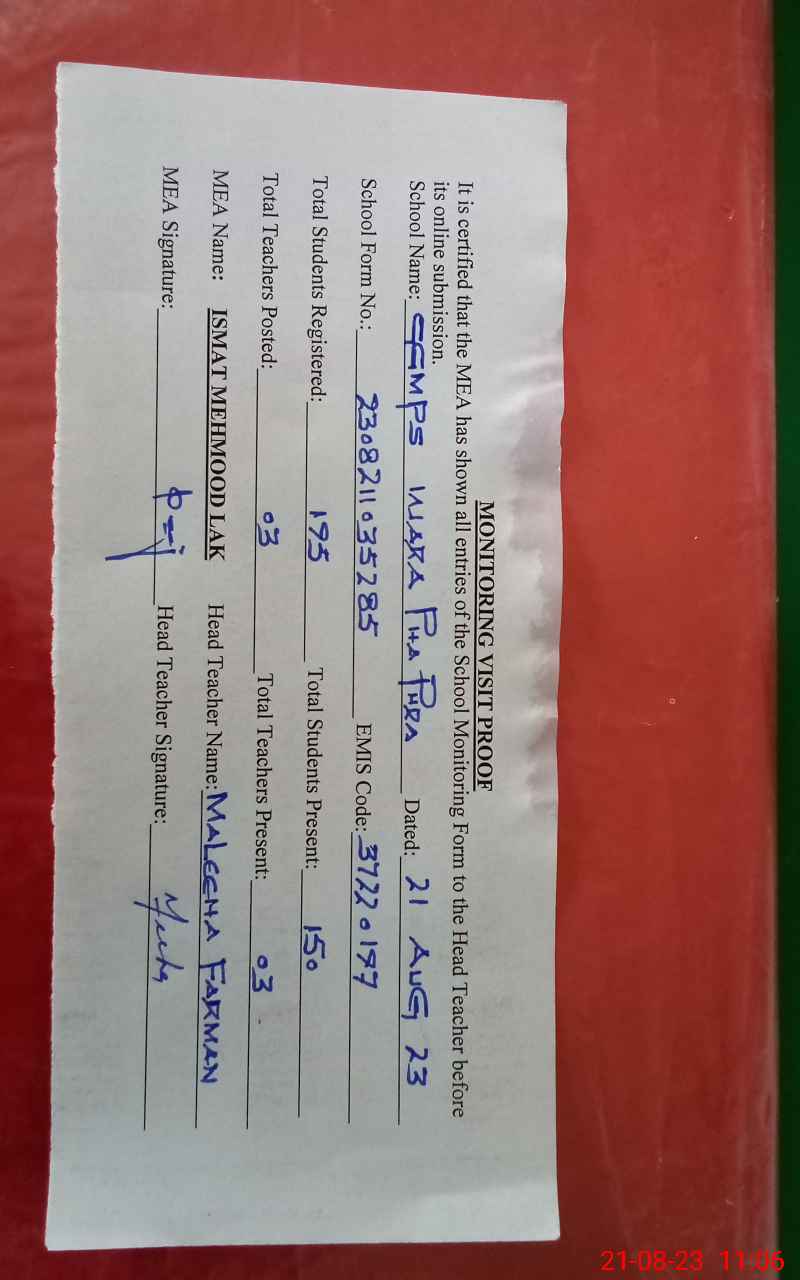 MONITORING VISIT PROOF
It is certified that the MEA has shown all entries of the School Monitoring Form to the Head Teacher before
its online submission.
School Name: GGMPS WARA PHA PHRA Dated: 21 AUG 23
School Form No.: 2308211035285 EMIS Code: 37220197
Total Students Registered: 195 Total Students Present: 150
Total Teachers Posted: 03 Total Teachers Present: 03
MEA Name: ISMAT MEHMOOD LAK Head Teacher Name: MALEEHA FARMAN
MEA Signature: Head Teacher Signature:
21-08-23 11:06